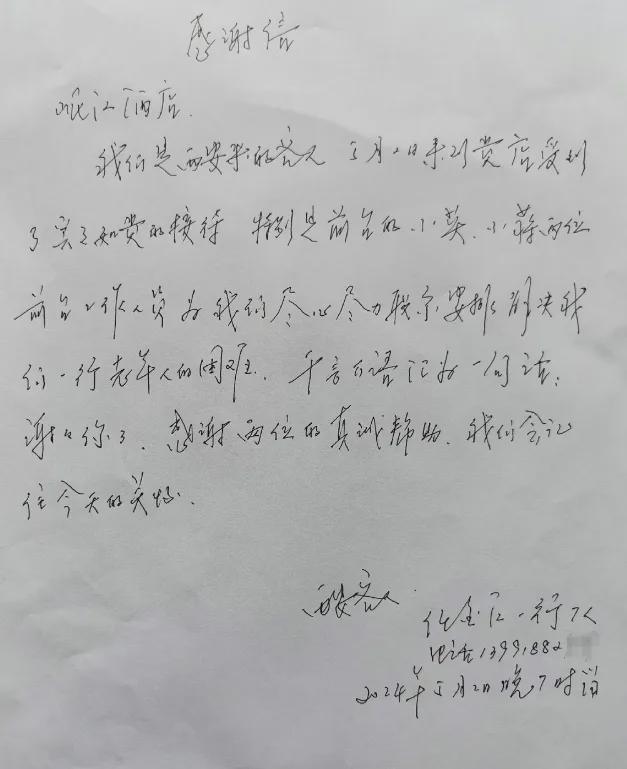 感谢信
岷江酒店.
我们是西安来的客人 5月2日来到贵店受到
了宾至如归的接待 特别是前台的小英、小蒋两位
前台工作人员为我们尽心尽力联系安排解决我
们一行老年人的困难. 千言万语汇为一句话:
谢谢你了. 感谢两位的真诚帮助. 我们会记
住今天的美好.
西安客人
一行7人
电话13991882
2024年5月2日晚7时